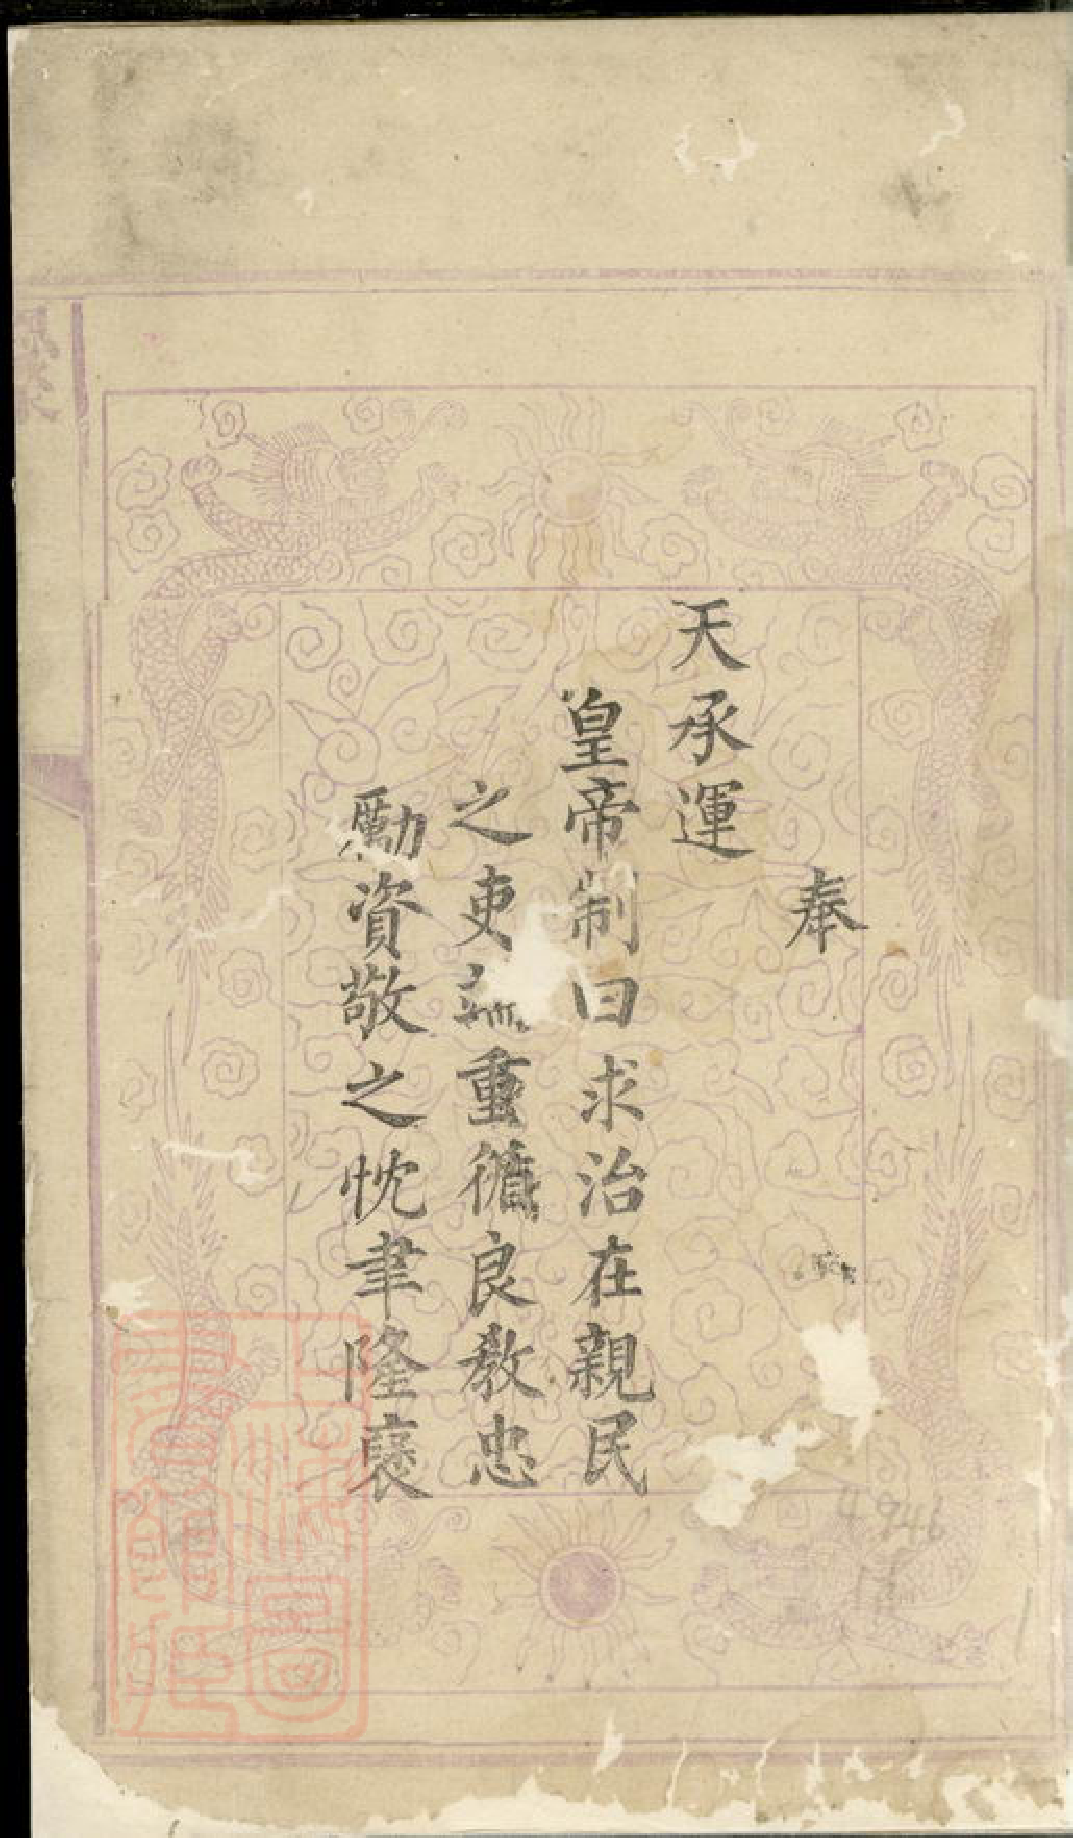 奉
天承運
皇帝制曰求治在親民
之吏無重循良教忠
勵資敬之忱聿隆褒
4946